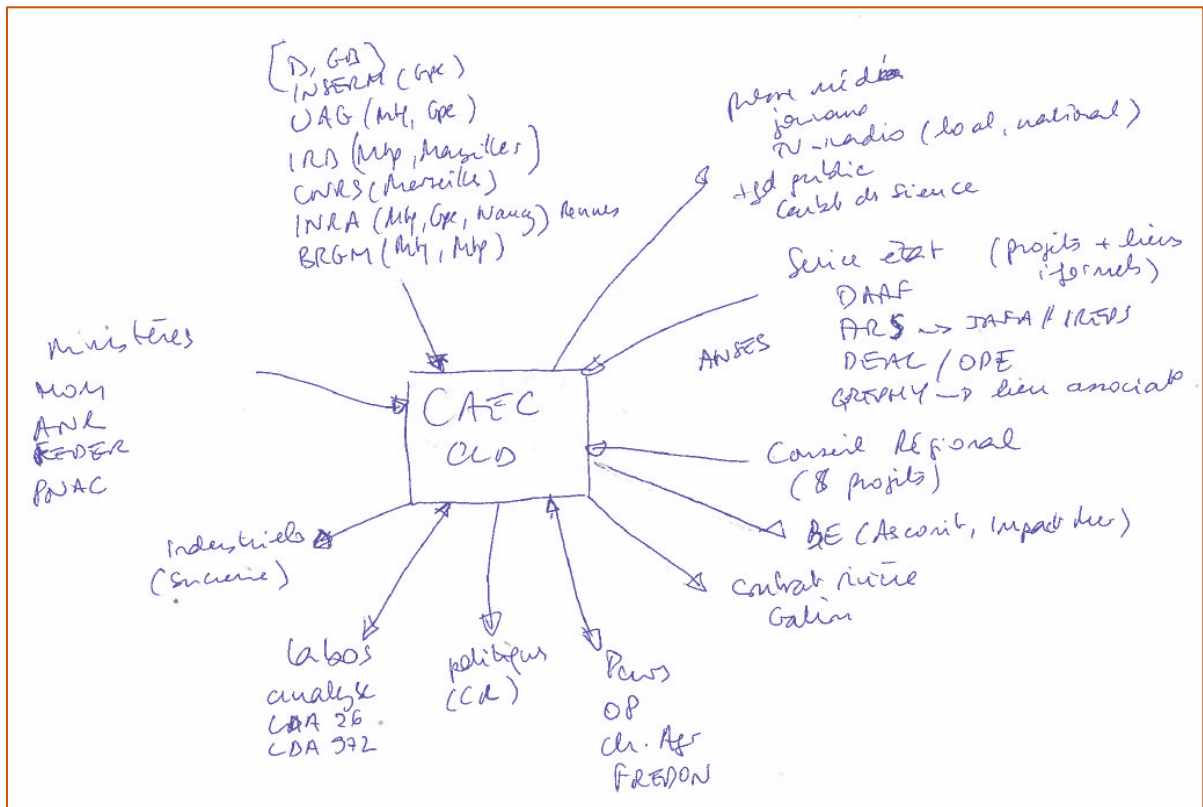 [D, GB]
INSERM (Gpe)
UAG (Mtq, Gpe)
IRD (Mtp, Marseille)
CNRS (Marseille)
INRA (Mtq, Gpe, Nancy) Rennes
BRGM (Mtq, Mtp)
presse média
journaux
TV-radio (local, national)
+ gd public
de science
Service état (projets + liens informels)
DAAF
ARS → JAFA / IREPS
ANSES
DEAL / ODE
GREPHY → lien associat
Ministères
MOM
ANR
FEDER
PNAC
CAEC
CLD
Conseil Régional
(8 projets)
BE (Asconit, Impact Mer)
contrat rivière
Galion
industriels
(sucrerie)
labos
analyse
LDA 26
LDA 972
politiques
(CR)
OP
Ch. Agr
FREDON